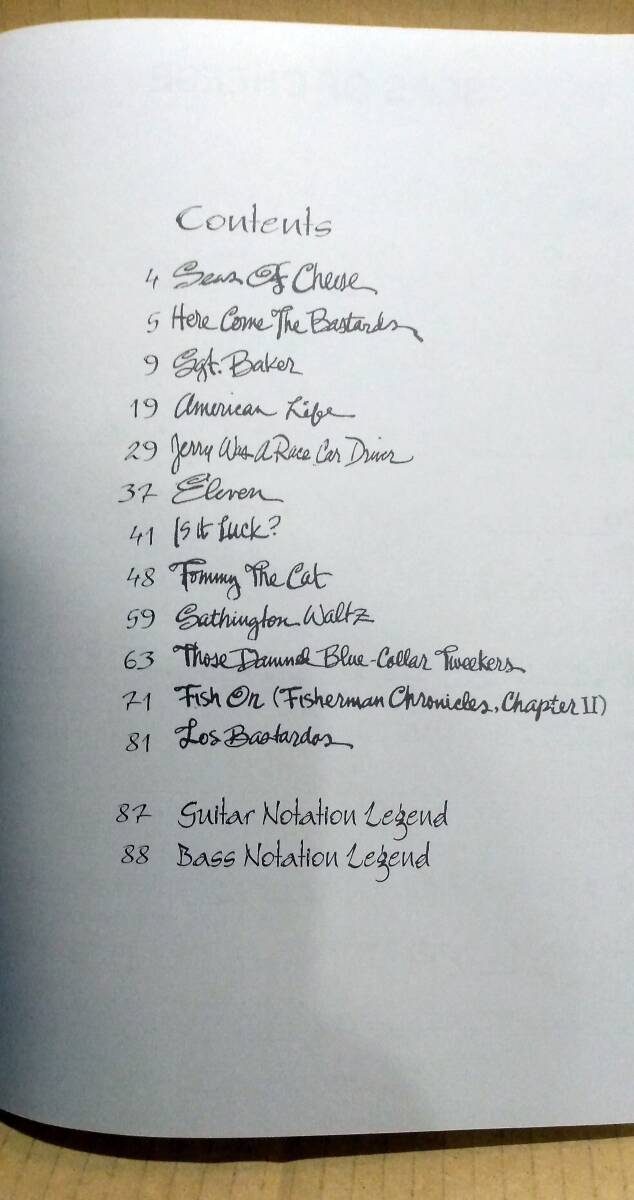 Contents
4 Seas Of Cheese
5 Here Come The Bastards
9 Sgt. Baker
19 American Life
29 Jerry Was A Race Car Driver
37 Eleven
41 Is It Luck?
48 Tommy The Cat
59 Sathington Waltz
63 Those Damned Blue-Collar Tweekers
71 Fish On (Fisherman Chronicles, Chapter II)
81 Los Bastardos
87 Guitar Notation Legend
88 Bass Notation Legend